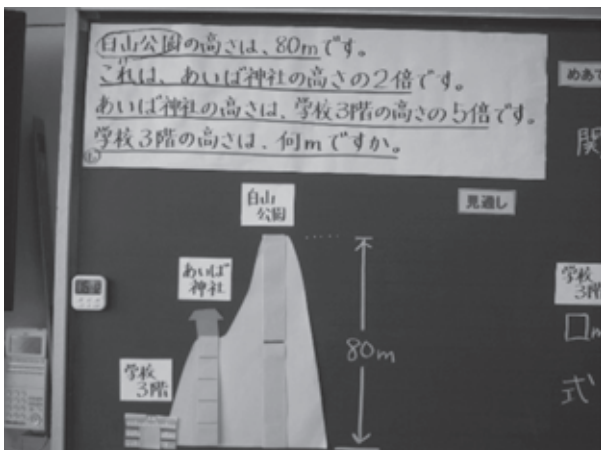 白山公園の高さは、80mです。
これは、あいば神社の高さの2倍です。
あいば神社の高さは、学校3階の高さの5倍です。
学校3階の高さは、何mですか。
めあて
関
見通し
白山
公園
あいば
神社
学校
3階
80m
学校
3階
□m
式